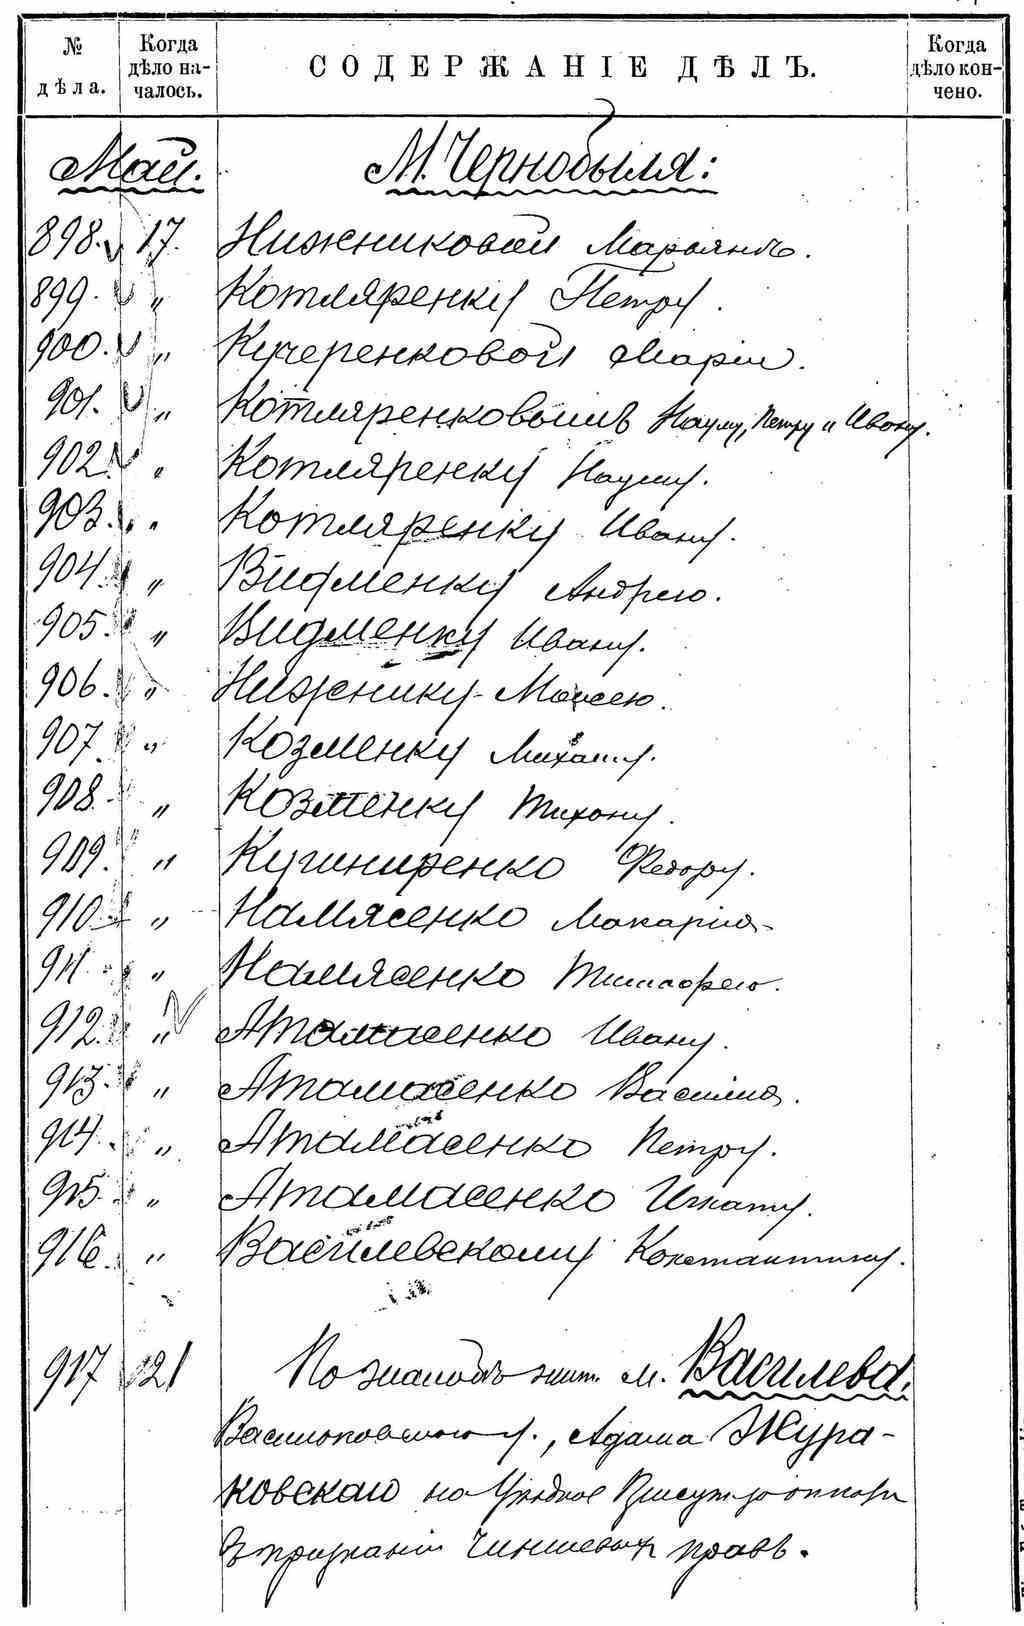 № дѣла. Когда дѣло началось. СОДЕРЖАНІЕ ДѢЛЪ. Когда дѣло кончено.
Май. М. Чернобыля:
898. 17. Нижниковой Марьянѣ.
899. „ Котляренку Петру.
900. „ Кучеренковой Маріи.
901. „ Котляренковымъ Науму, Петру и Ивану.
902. „ Котляренку Науму.
903. „ Котляренку Ивану.
904. „ Видменку Андрею.
905. „ Видменку Ивану.
906. „ Нижнику Моисею.
907. „ Козменку Михаилу.
908. „ Козменку Тихону.
909. „ Кушниренко Федору.
910. „ Намясенко Макарію
911. „ Намясенко Тимофею.
912. „ Атамасенко Ивану.
913. „ Атамасенко Василію.
914. „ Атамасенко Петру.
915. „ Атамасенко Игнату.
916. „ Василевскому Константину.
917 21 По жалобѣ жит. м. Василева,
Васильковского у., Адама Жура-
ковскаго на Уѣздное Присут. по
признаніи чиншевых правъ.